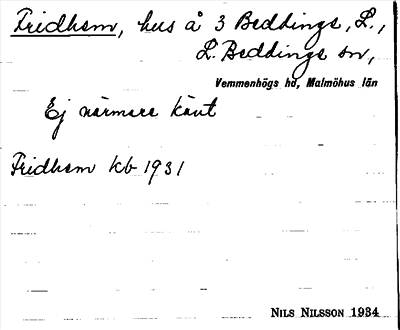 Fridhem, hus å 3 Beddinge, L.,
L. Beddinge sn,
Vemmenhögs hd, Malmöhus län
Ej närmare känt
Fridhem kb 1931
NILS NILSSON 1934